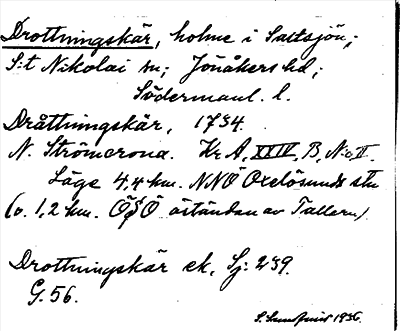 Drottningskär, holme i Saltsjön;
S:t Nikolai sn; Jönåkers hd;
Södermanl. l.
Dråttningskär, 1734.
N. Strömcrona. Kr A, XXIV, B, N:o II.
Läge 4,4 km. NNÖ Oxelösunds stn
(o. 1,2 km. ÖSÖ öständan av Tallern).
Drottningskär ek, Sj: 239.
G. 56.
1936.